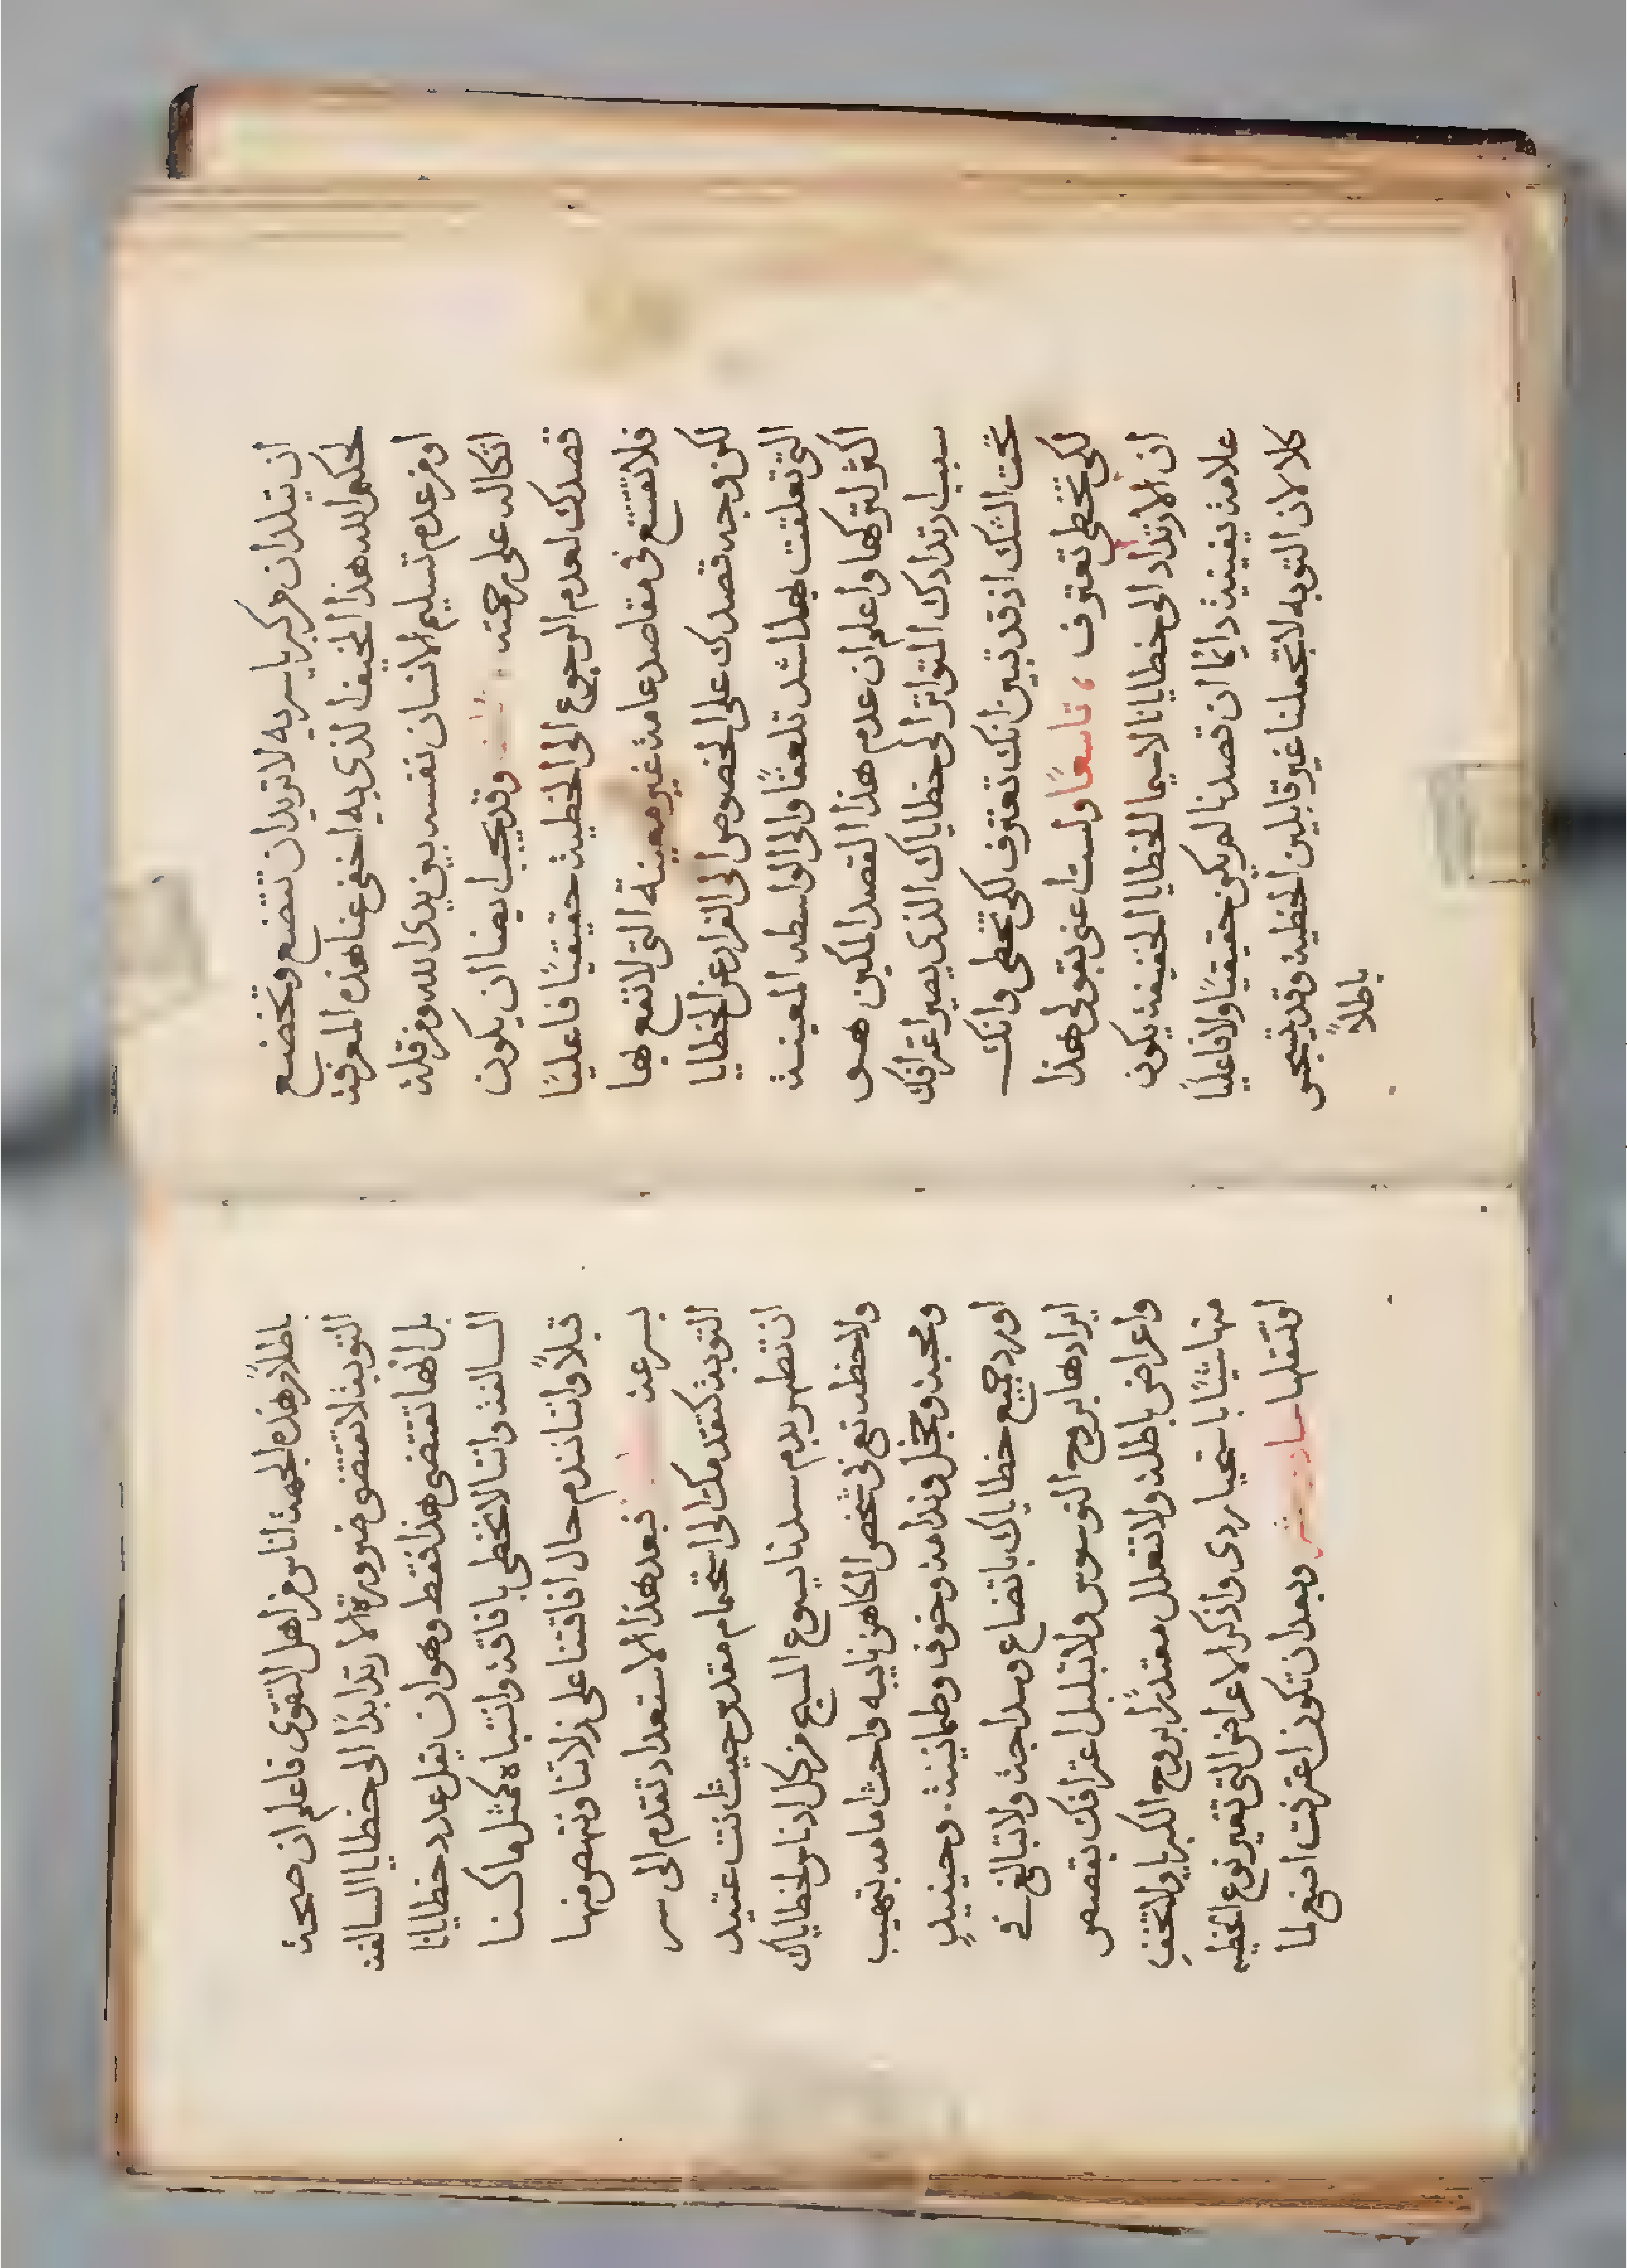 ان تيلدان من كبريا سريه لا تريدان تتضع وتخضع
لحكم الله هذا الخيف الذي به اخفي عنا هذه المعرفة
او من عدم تسليم الانسان نفسه بين يدي الله ومن قلة
اتكاله على رحمته وقد يجب ايضا ان يكون
قصدك لعدم الرجوع الى الخطية حقيقيًا فاعليًا
فلا تقتنع في مقاصد عامة غير معينة التي لا تقع بها
لكن وجه قصدك على الخصوص الى الفرار عن الخطايا
التي تعلقت بها اشد تلعقًا والى الواسطه المعينة
اكثر لتركها واعلم ان عدم هذا القصد المكين هو
سبب ارتدادك المتواتر الى خطاياك الذي يصير اعترافك
تحت الشك اذ قد تبين انك تعترف لكي تخطي وانك
لكي تخطي تعترف ، تاسعًا ولست اعني بقولي هذا
ان الارتداد الى خطايانا لاسيما الخطايا الخفيفة يكون
علامة يقينية دائمًا ان قصدنا لم يكن حقيقيًا ولا فاعليًا
كلا لان التوبه لا تجعلنا غير قابلين الخطيه وقد يتجس
باطلاً
باطلاً من هذه الجهة اناس من اهل التقوى فاعلم ان صحة
التوبة لا تقتضي ضرورة الا نرتد ابدًا الى خطايا السالفة
بل انها تقتضي هذا فقط وهو ان تقل عدد خطايانا
السالفة واننا لا نخطي بافاقة وانتباه كمثل ما كنا
قبلاً واننا نندم حال افاقتنا على زلاتنا وننهض منها
بسرعة فبعد هذا الاستعداد تقدم الى سر
التوبة كتقدمك الى استحمام مقدس حيث انت عتيد
ان تطهر بدم سيدنا يسوع المسيح من كل ادناس خطاياك
ولاحظه تع في شخص الكاهن نايبه واحث امامه بتهيب
ومحبة وخجل وندامة وخوف وطمانينة . وحينيذٍ
اورد جميع خطاياك باتضاع وسداجة ولا تبالغ في
ايرادها بروح التوسوس ولا تبلبل اعترافك بقصص
واعراض باطلة ولا تتعلل معتذرًا بروح الكبريا ولا تخفِ
منها شيئًا باستحيا ردى واذكر الاعراض التي تغير نوع الخطيه
او تثقلها وبعد ان تكون اعترفت اصغ لما